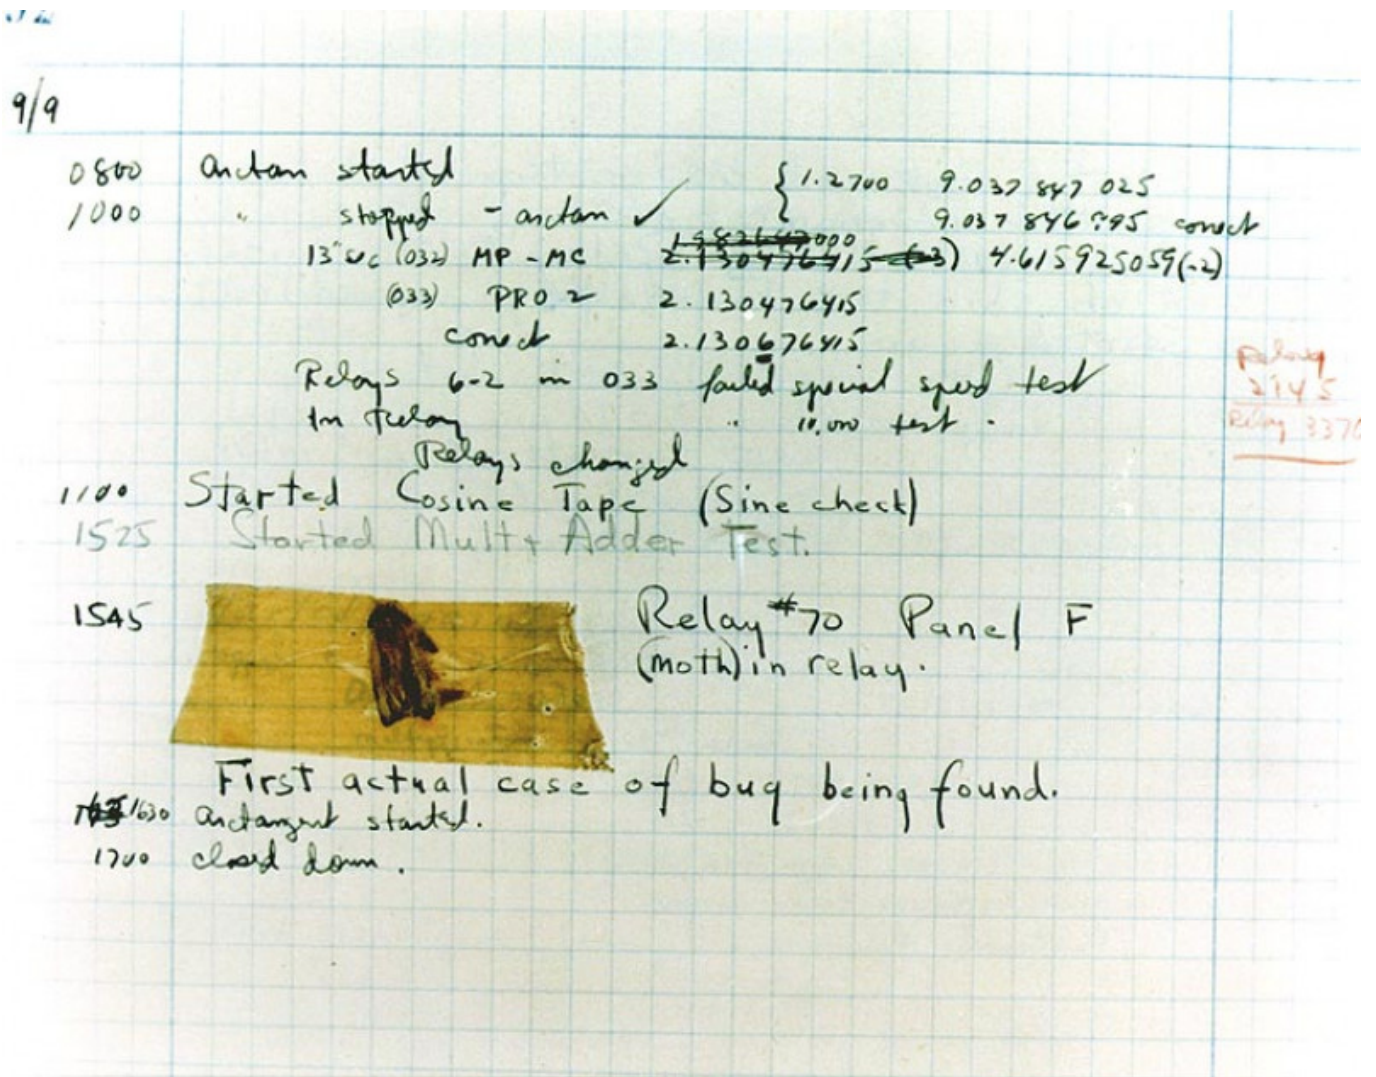 9/9
0800 arctan started { 1.2700 9.037 847 025
1000 " stopped - arctan ✓ 9.037 846 995 correct
13" sec (032) MP - MC 1.982647000 2.130476415 (-3) 4.615925059(-2)
(033) PRO 2 2.130476415
correct 2.130676415
Relays 6-2 in 033 failed special speed test
In Relay " 10,000 test .
Relays changed
Relay
2145
Relay 3370
1100 Started Cosine Tape (Sine check)
1525 Started Mult + Adder Test.
1545 Relay #70 Panel F
(moth) in relay.
First actual case of bug being found.
1630 arctangent started.
1700 closed down.